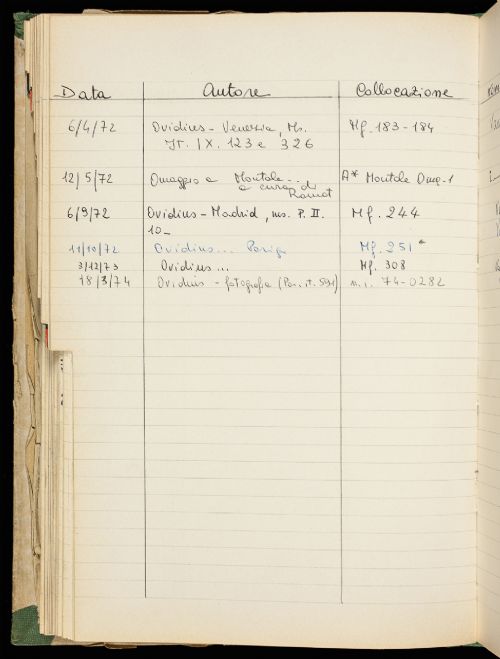 Data Autore Collocazione
6/4/72 Ovidius - Venezia, Ms. Mf. 183-184
It. IX. 123 e 326
12/5/72 Omaggio a Montale... A* Montale Omg. 1
a cura di
Ramat
6/9/72 Ovidius - Madrid, ms. P. II. Mf. 244
10_
11/10/72 Ovidius... Parigi Mf. 251 *
3/12/73 Ovidius... Mf. 308
18/3/74 Ovidius - fotografie (Par. it. 591) n.i. 74-0282